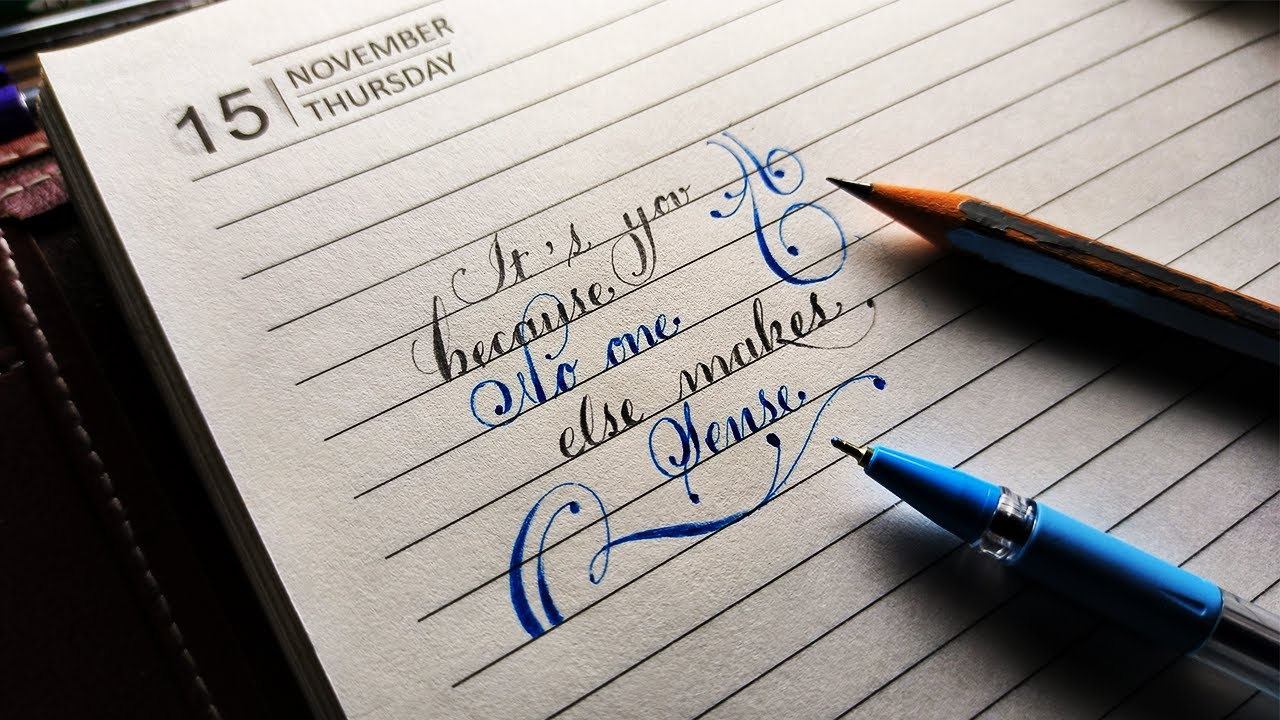 15 NOVEMBER
THURSDAY
It's you
because
No one
else makes
Sense